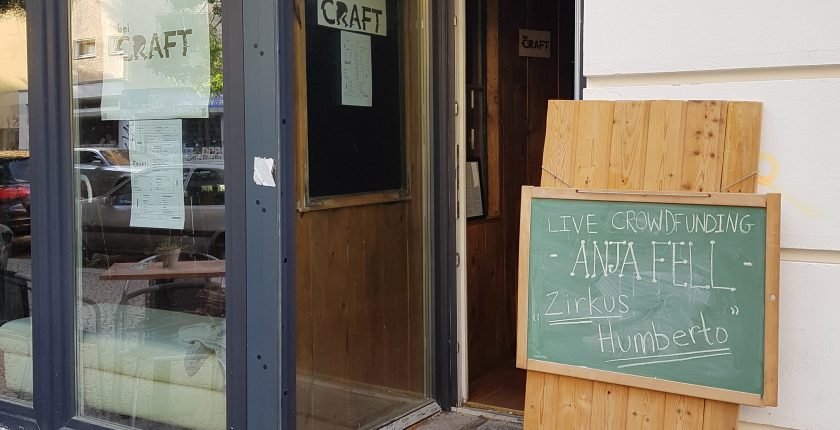 bei
CRAFT
CRAFT
bei
CRAFT
LIVE CROWDFUNDING
- ANJA FELL -
„Zirkus
Humberto"